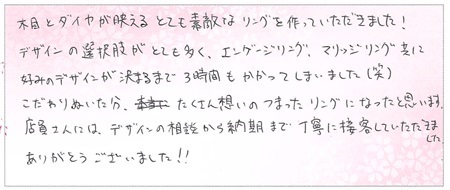 木目とダイヤが映えるとても素敵なリングを作っていただきました!
デザインの選択肢がとても多く、エンゲージリング、マリッジリング共に
好みのデザインが決まるまで3時間もかかってしまいました(笑)
こだわりぬいた分、たくさん想いのつまったリングになったと思います。
店員さんには、デザインの相談から納期まで丁寧に接客していただきました
ありがとうございました!!